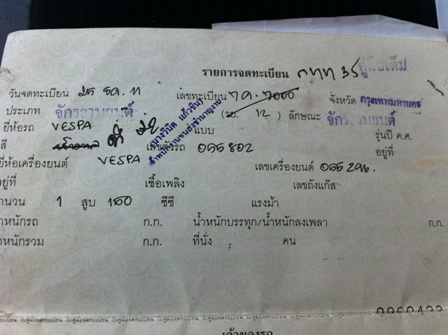 รายการจดทะเบียน กทท 35 คู่มือเต็ม
วันจดทะเบียน 25 ธค. 11 เลขทะเบียน 7000 จังหวัด กรุงเทพมหานคร
ประเภท จักรยานยนต์ ลักษณะ จักรยานยนต์
ยี่ห้อรถ VESPA แบบ รุ่นปี ค.ศ.
สี เลขตัวรถ 055802 อยู่ที่
ยี่ห้อเครื่องยนต์ VESPA เลขเครื่องยนต์ 055296
อยู่ที่ เชื้อเพลิง เลขถังแก๊ส
จำนวน 1 สูบ 150 ซีซี แรงม้า
น้ำหนักรถ ก.ก. น้ำหนักบรรทุก/น้ำหนักลงเพลา ก.ก.
น้ำหนักรวม ก.ก. ที่นั่ง คน
เจ้าของรถ